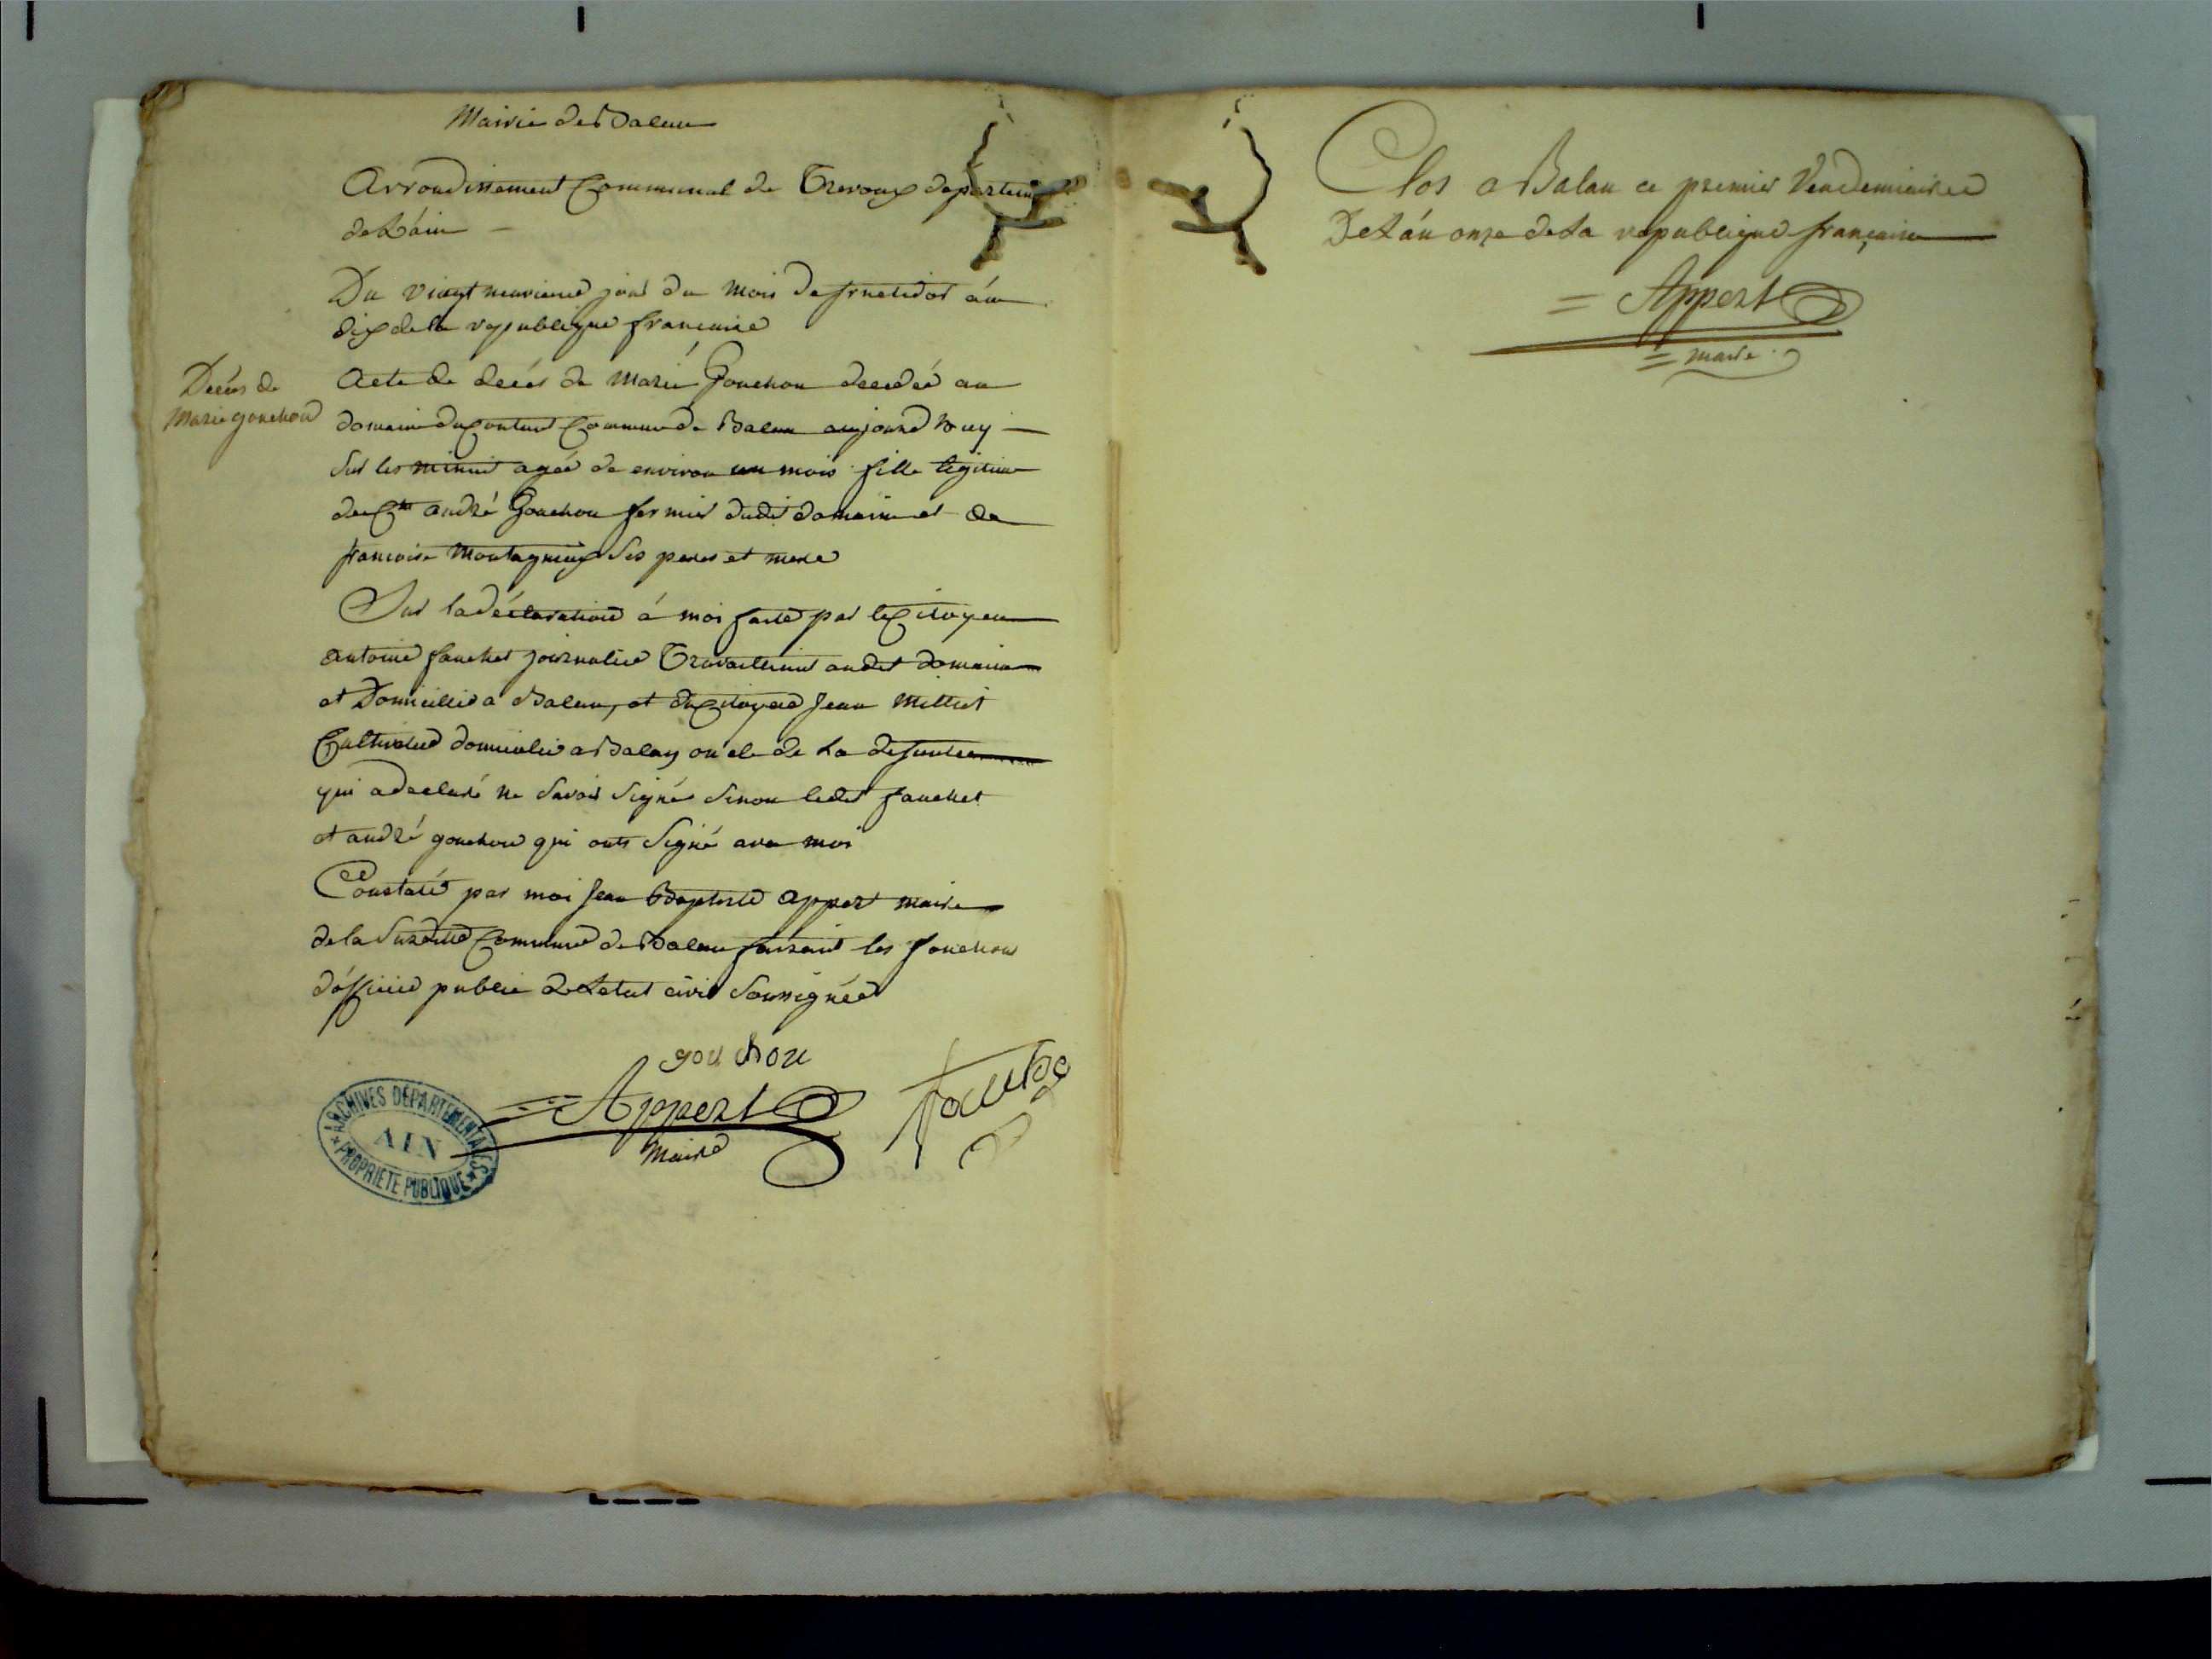 Mairie de Balan
Arrondissement Communal de Trevoux departem
de L'áin
Du vingt neuvieme jour du mois de fructidor án
dix de la republique francaise
Decés de
Marie gouchon
Acte de decés de Marie Gouchon decedeé au
domaine du Contant Commune de Balan aujourd huy
sur les minuit ageé de environ un mois fille legitime
de Cen andré Gouchon fermier dudit domaine et de
francoise Montagnieux ses peres et mere
Sur la déclaration á moi faite par le Citoyen
antoine fauchet journalier Travaillant audit domaine
et Domicilié a Balan, et du Citoyen Jean Milliet
Cultivateur domicilié a Balan oncle de La defunte
qui a declaré ne savoir signé sinon ledit fauchet
et andré gouchon qui onts signé avec moi
Constaté par moi Jean Baptiste Appert maire
de la susditte Commune de Balan faisant les fonctions
d'óffiicié public de L'etat civil soussignée
gouchon
Appert
Maire
ARCHIVES DÉPARTEMENTALES
AIN
PROPRIETE PUBLIQUE
Clos a Balan ce premier Vendemiaire
De L'án onze de La republique française
Appert
maire